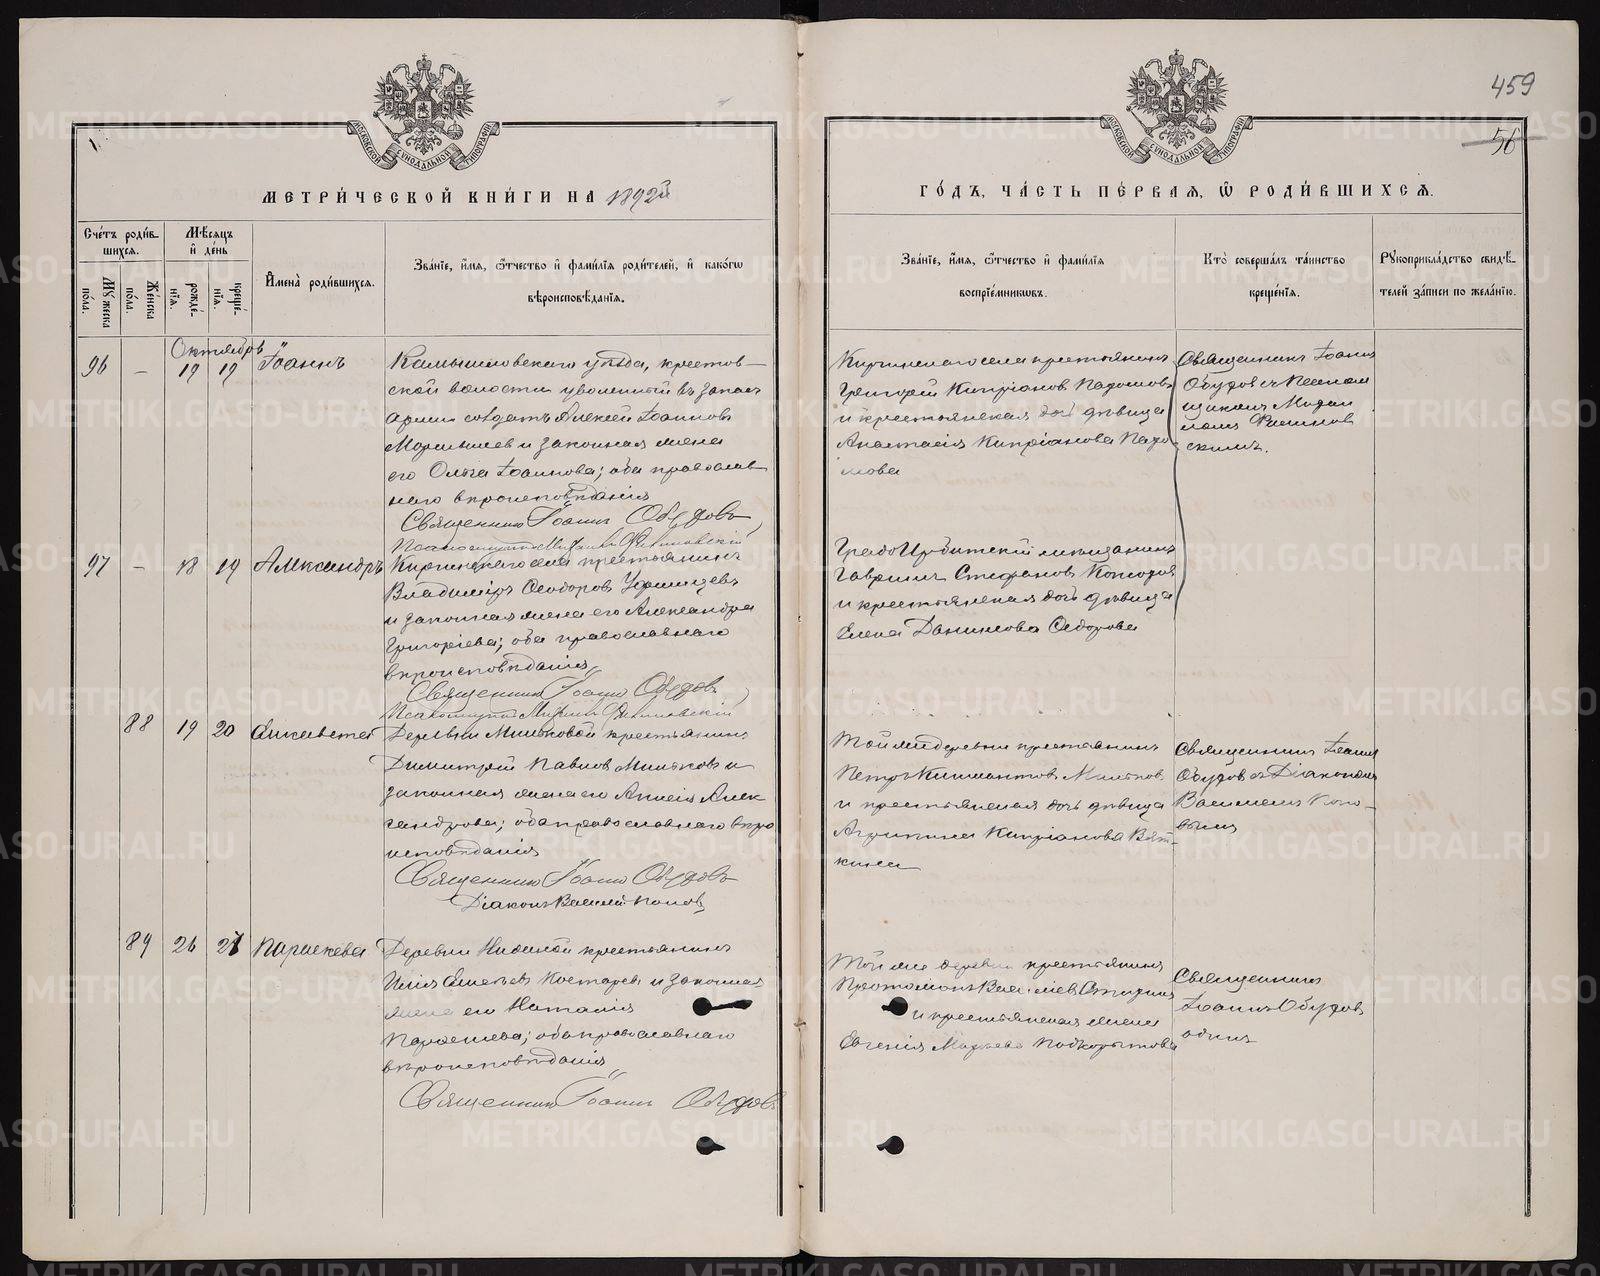 459
56
МОСКОВСКОЙ СѴНОДАЛЬНОЙ ТИПОГРАФІИ
МЕТРИ́ЧЕСКОЙ КНИ́ГИ НА 1892й
Сче́тъ роди́вшихся.
Му́жеска по́ла.
Же́нска по́ла.
Мѣ́сяцъ и҆ де́нь
рожде́нїѧ.
креще́нїѧ.
И҆мена̀ роди́вшихсѧ.
Зва́нїе, и҆́мѧ, ѻ҆́тчество и҆ фами́лїѧ роди́телей, и҆ како́гѡ
вѣроисповѣ́данїѧ.
Октябрь
96 — 19 19 Іоаннъ
Камышловскаго уѣзда, крестов-
ской волости уволенный въ запасъ
армии солдатъ Алексей Іоанновъ
и законная жена
его Ольга Іоаннова; оба православ
наго вѣроисповѣданія
Священникъ Іоаннъ Обудовъ
97 — 18 19 Александръ
Киргинскаго села крестьянинъ
Владиміръ Ѳеодоровъ
и законная жена его Александра
Григоріева; оба православнаго
вѣроисповѣданія
Священникъ Іоаннъ Обудовъ
88 19 20 Елисавета
Деревни Мильковой крестьянинъ
Димитрій Павловъ Мильковъ и
законная жена его Алек
сандрова; оба православнаго вѣро
исповѣданія
Священникъ Іоаннъ Обудовъ
Діаконъ Василій Поповъ
89 26 27 Параскева
Деревни крестьянинъ
Костаревъ и законная
жена его Наталія
оба православнаго
вѣроисповѣданія
Священникъ Іоаннъ Обудовъ
МОСКОВСКОЙ СѴНОДАЛЬНОЙ ТИПОГРАФІИ
ГО́ДЪ, ЧА́СТЬ ПЕ́РВАѦ, Ѡ҆ РОДИ́ВШИХСѦ.
Зва́нїе, и҆́мѧ, ѻ҆́тчество и҆ фами́лїѧ
воспрїе́мникѡвъ.
Кто̀ соверша́лъ та́инство
креще́нїѧ.
Рꙋкоприкла́дство свидѣ́-
телей за́писи по жела́нїю.
Киргинскаго села крестьянинъ
Григорій Кипріановъ
и крестьянская дочь дѣвица
Анастасія Кипріанова
Священникъ Іоаннъ
Обудовъ съ Псалом
щикомъ Михаи
ломъ Филинов
скимъ.
Градо Ирбитскій мѣщанинъ
Гавріилъ Стефановъ
и крестьянская дочь дѣвица
Елена Данилова Ѳедорова
Той же деревни крестьянинъ
Петръ Климантовъ Мильковъ
и крестьянская дочь дѣвица
Агрипина Кипріанова Вят-
кина
Священникъ Іоаннъ
Обудовъ съ Діакономъ
Василіемъ Попо-
вымъ
Той же деревни крестьянинъ
и крестьянская жена
Евгенія Подкорытова
Священникъ
Іоаннъ Обудовъ
одинъ
METRIKI.GASO-URAL.RU